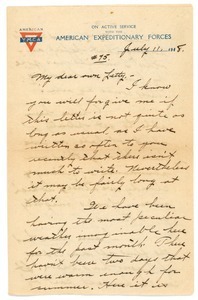 AMERICAN
YMCA
ON ACTIVE SERVICE
WITH THE
AMERICAN EXPEDITIONARY FORCES
July 11, 1918.
#75.
My dear own Letty—
I know
you will forgive me if
this letter is not quite as
long as usual, as I have
written so often to you
recently that there isn't
much to write. Nevertheless
it may be fairly long at
that.
We have been
having the most peculiar
weather imaginable here
for the past month. There
haven't been two days that
were warm enough for
summer. Here it is